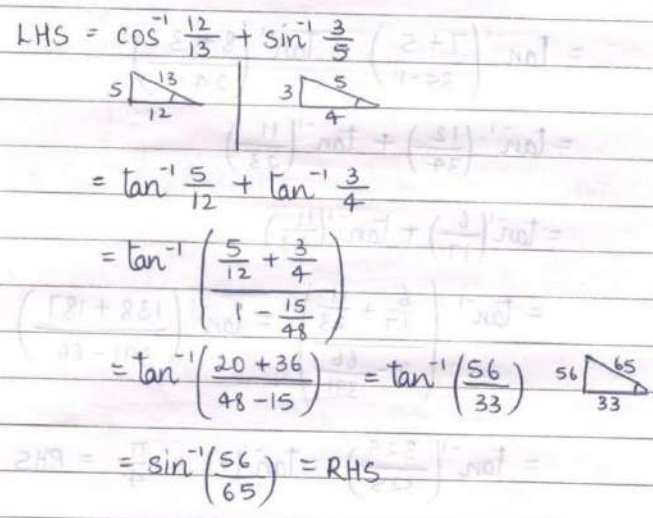 LHS = cos⁻¹ 12/13 + sin⁻¹ 3/5
5 13 12 3 5 4
= tan⁻¹ 5/12 + tan⁻¹ 3/4
= tan⁻¹ ((5/12 + 3/4)/(1 - 15/48))
= tan⁻¹ ((20 + 36)/(48 - 15)) = tan⁻¹ (56/33) 56 65 33
= sin⁻¹ (56/65) = RHS